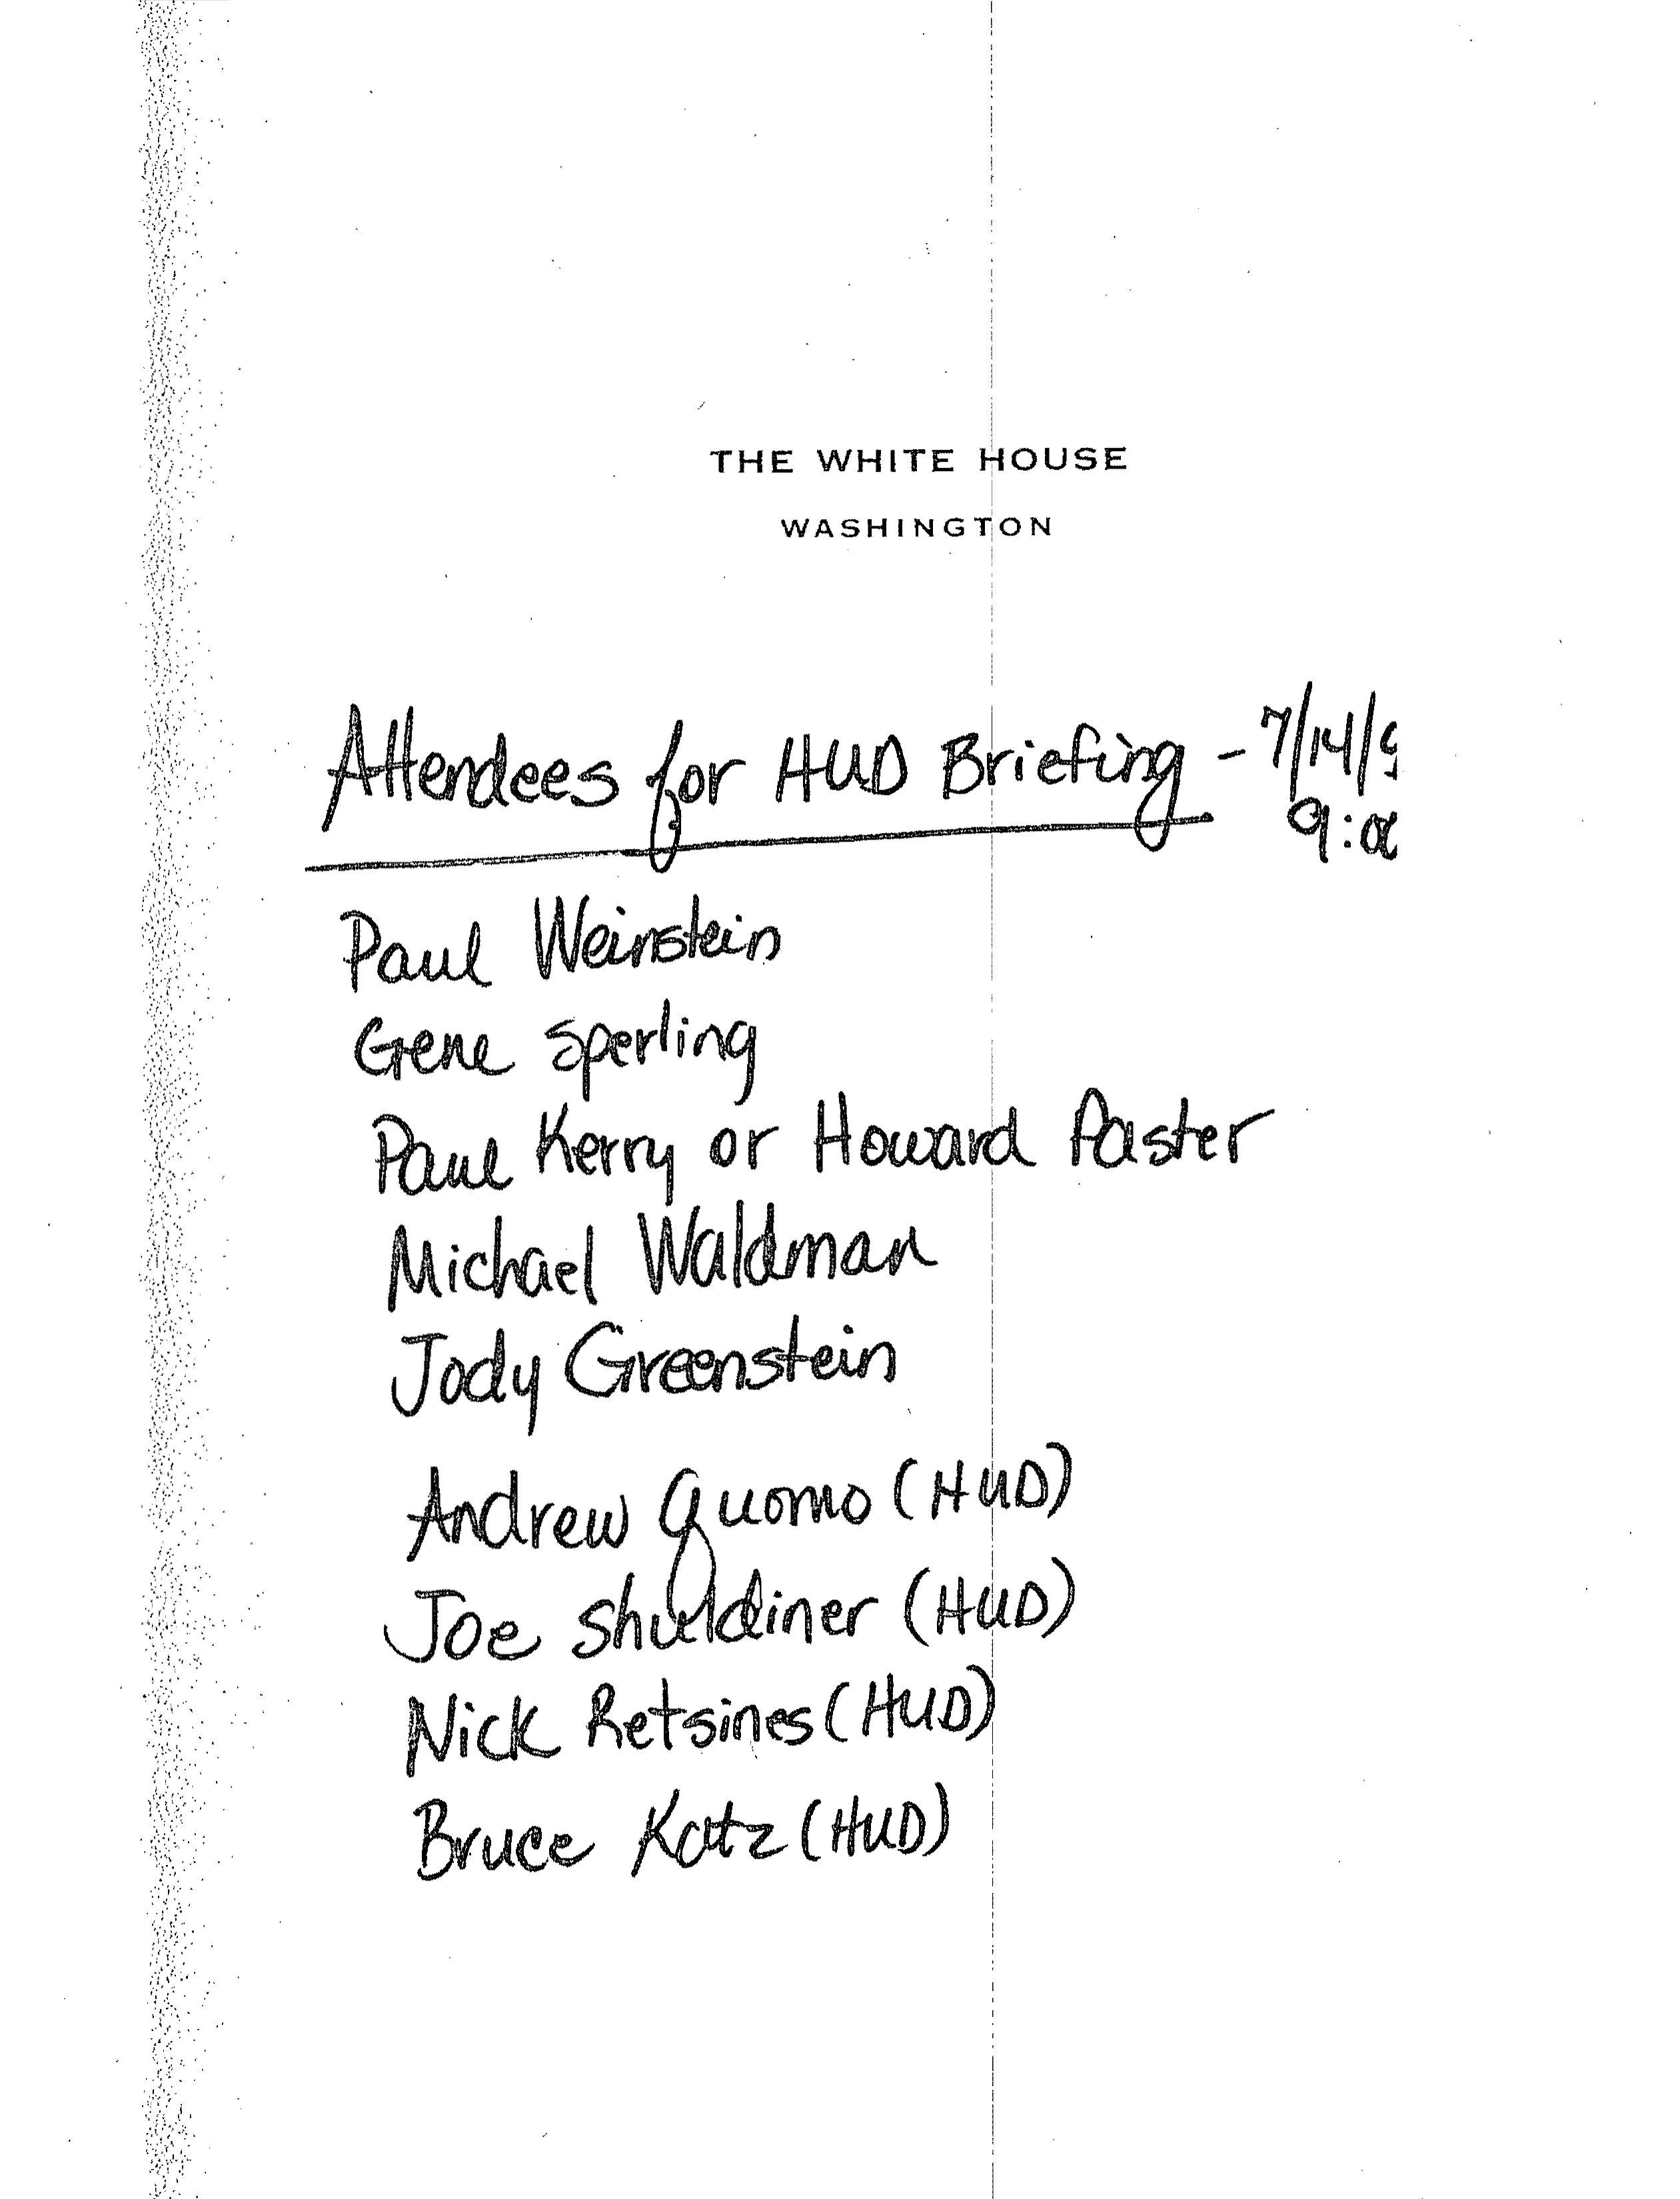 THE WHITE HOUSE
WASHINGTON
Attendees for HUD Briefing - 7/14/9
9:00
Paul Weinstein
Gene Sperling
Paul Kerry or Howard Paster
Michael Waldman
Jody Greenstein
Andrew Quomo (HUD)
Joe Shuldiner (HUD)
Nick Retsines (HUD)
Bruce Katz (HUD)